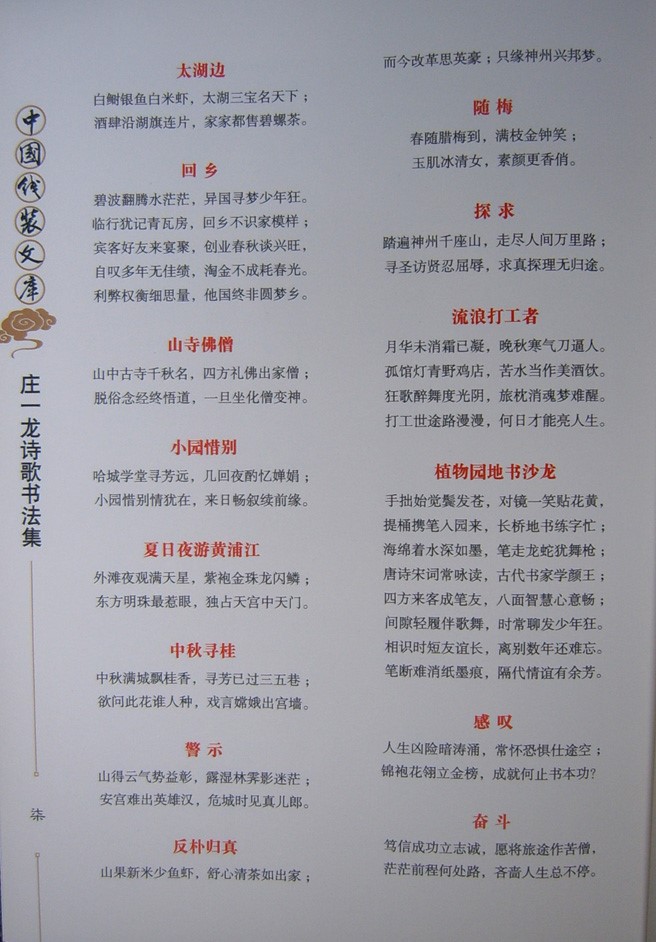 中国线装文库
庄一龙诗歌书法集
柒
太湖边
白鲥银鱼白米虾，太湖三宝名天下；
酒肆沿湖旗连片，家家都售碧螺茶。
回乡
碧波翻腾水茫茫，异国寻梦少年狂。
临行犹记青瓦房，回乡不识家模样；
宾客好友来宴聚，创业春秋谈兴旺，
自叹多年无佳绩，淘金不成耗春光。
利弊权衡细思量，他国终非圆梦乡。
山寺佛僧
山中古寺千秋名，四方礼佛出家僧；
脱俗念经终悟道，一旦坐化僧变神。
小园惜别
哈城学堂寻芳远，几回夜酌忆婵娟；
小园惜别情犹在，来日畅叙续前缘。
夏日夜游黄浦江
外滩夜观满天星，紫袍金珠龙闪鳞；
东方明珠最惹眼，独占天宫中天门。
中秋寻桂
中秋满城飘桂香，寻芳已过三五巷；
欲问此花谁人种，戏言嫦娥出宫墙。
警示
山得云气势益彰，露湿林霁影迷茫；
安宫难出英雄汉，危城时见真儿郎。
反朴归真
山果新米少鱼虾，舒心清茶如出家；
而今改革思英豪；只缘神州兴邦梦。
随梅
春随腊梅到，满枝金钟笑；
玉肌冰清女，素颜更香俏。
探求
踏遍神州千座山，走尽人间万里路；
寻圣访贤忍屈辱，求真探理无归途。
流浪打工者
月华未消霜已凝，晚秋寒气刀逼人。
孤馆灯青野鸡店，苦水当作美酒饮。
狂歌醉舞度光阴，旅枕消魂梦难醒。
打工世途路漫漫，何日才能亮人生。
植物园地书沙龙
手拙始觉鬓发苍，对镜一笑贴花黄，
提桶携笔入园来，长桥地书练字忙；
海绵着水深如墨，笔走龙蛇犹舞枪；
唐诗宋词常咏读，古代书家学颜王；
四方来客成笔友，八面智慧心意畅；
间隙轻履伴歌舞，时常聊发少年狂。
相识时短友谊长，离别数年还难忘。
笔断难消纸墨痕，隔代情谊有余芳。
感叹
人生凶险暗涛涌，常怀恐惧仕途空；
锦袍花翎立金榜，成就何止书本功？
奋斗
笃信成功立志诚，愿将旅途作苦僧，
茫茫前程何处路，吝啬人生总不停。